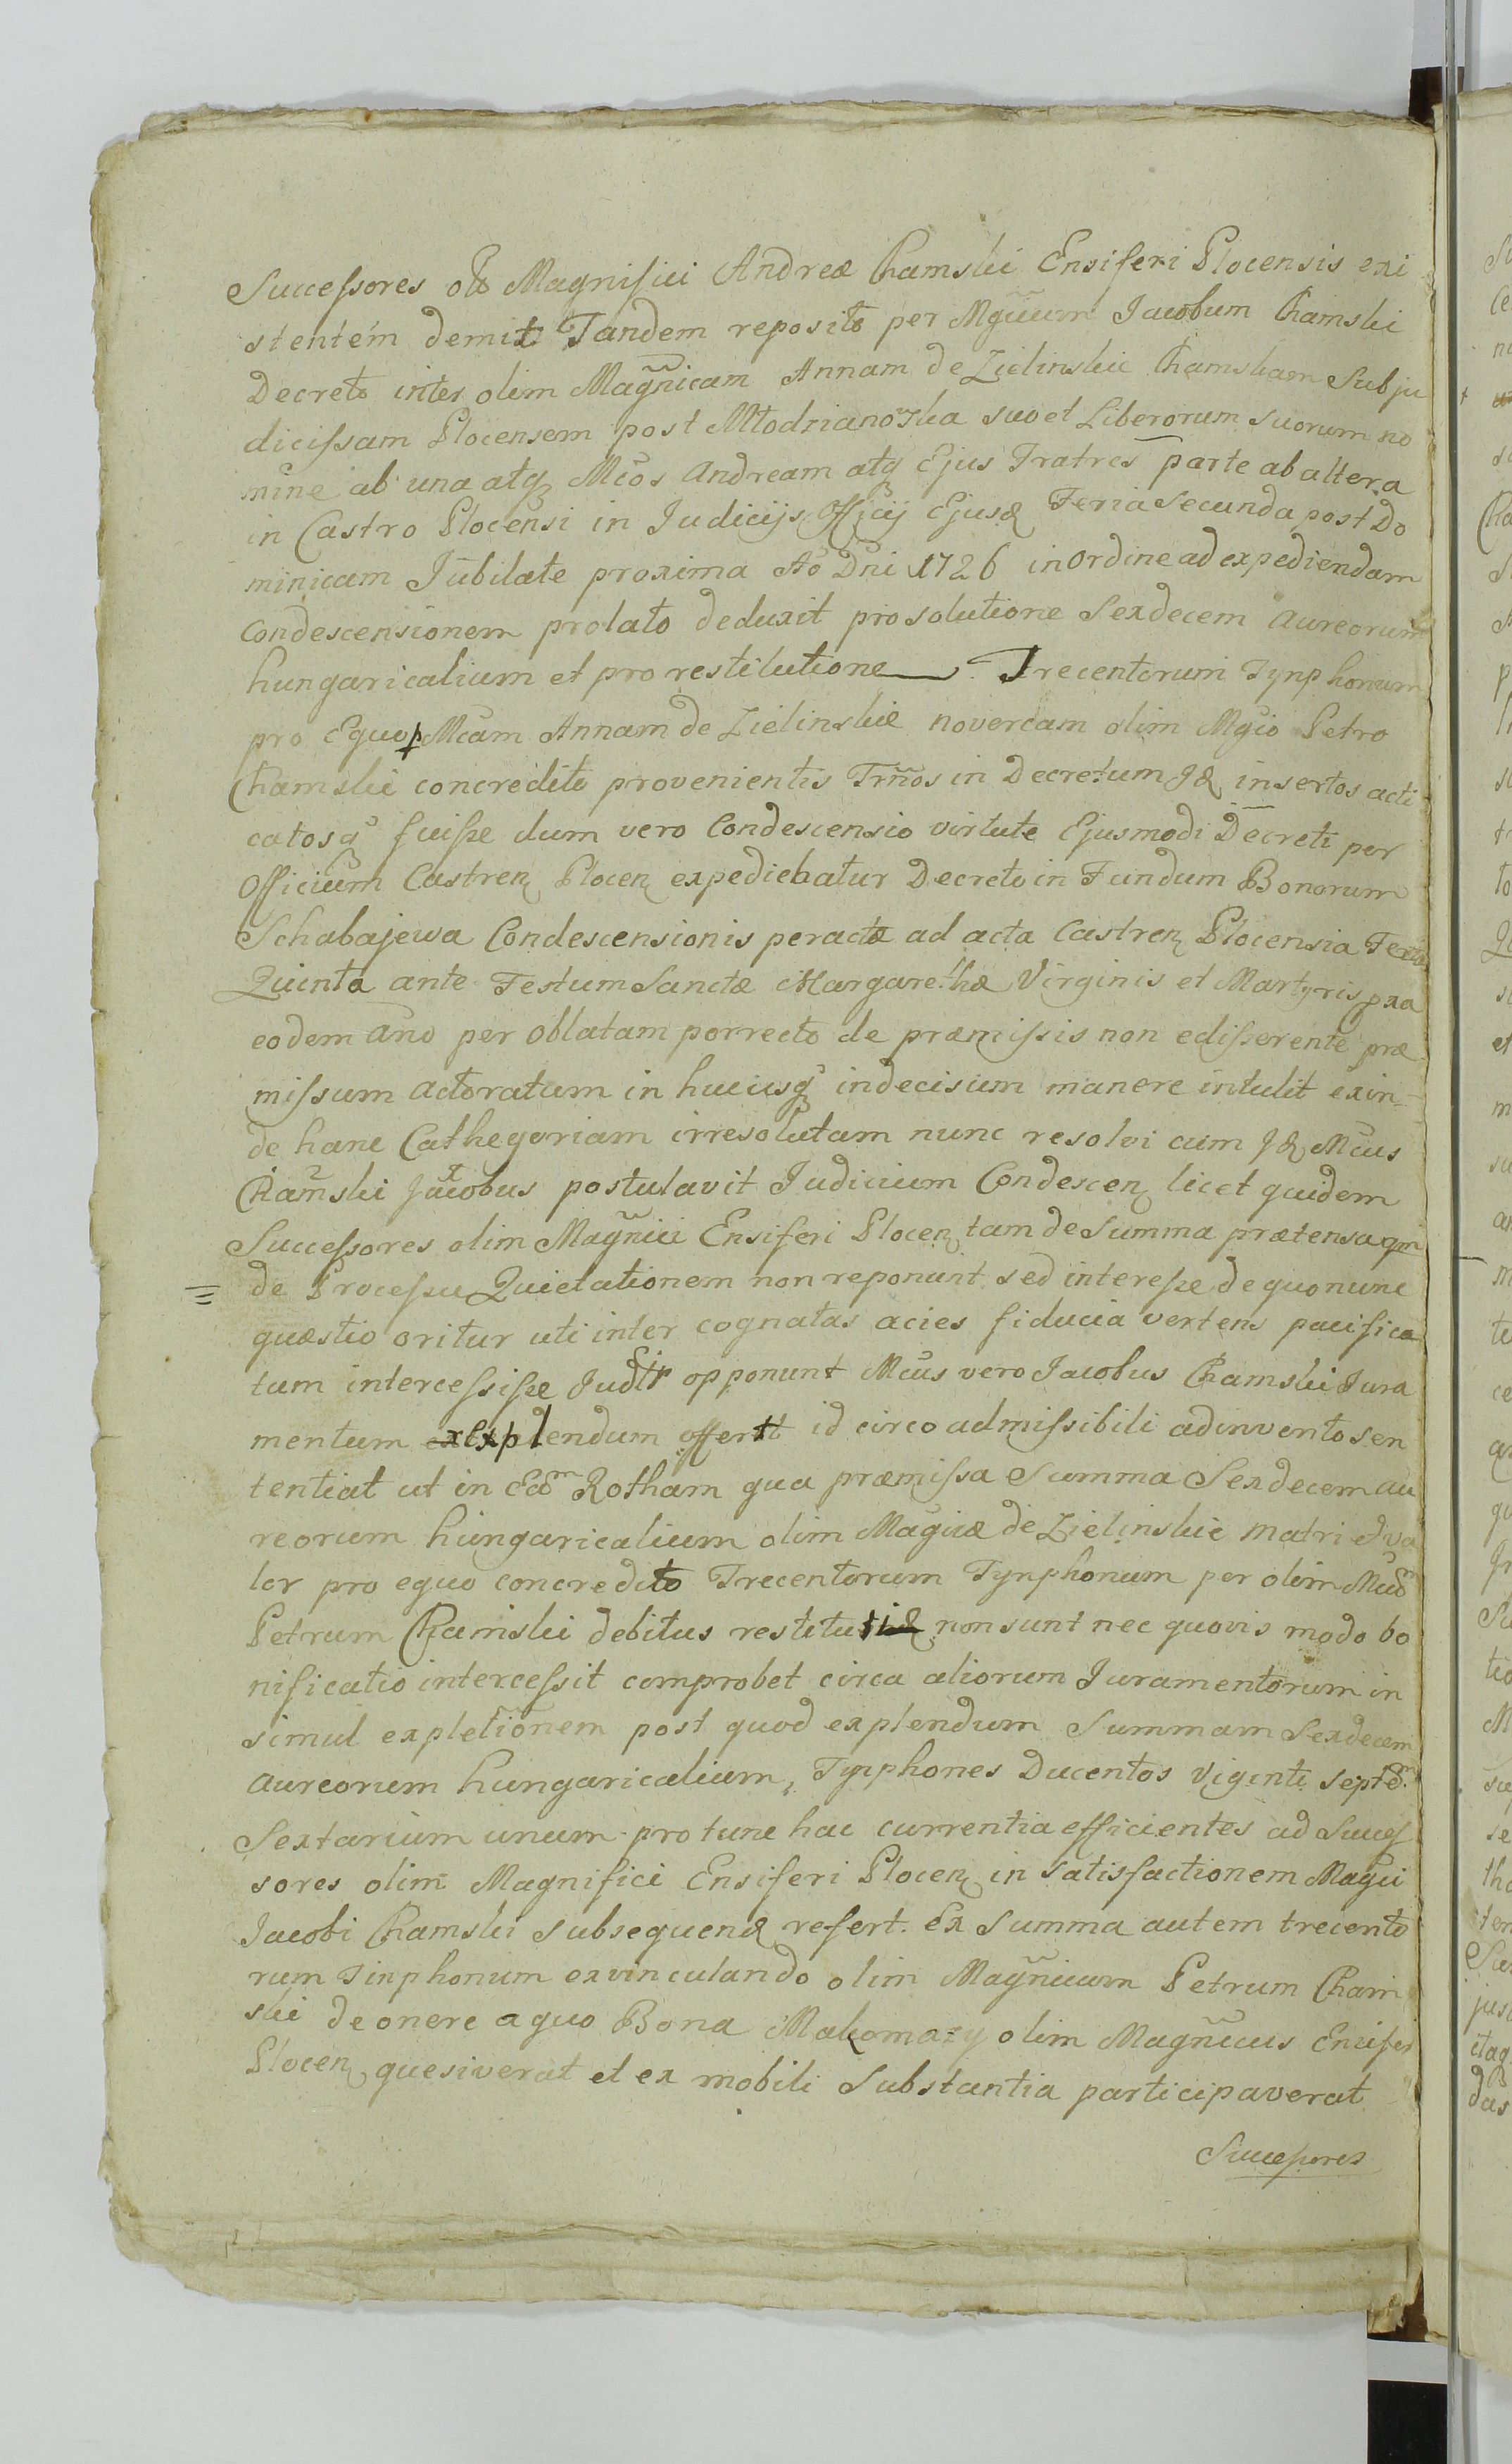 Successores olim Magnifici Andreæ Chamski Ensiferi Plocensis exi
stentem demit Tandem reposito per Mgñcum Jacobum Chamski
Decreto inter olim Magñicam Annam de Zielinskie Chamskam Subju
dicissam Plocensem post Młodzianowska suo et Liberorum suorum no
mine ab una atq Mcos Andream atq Ejus Fratres parte ab altera
in Castro Plocensi in Judicijs Officij Ejusd Feria Secunda post Do
minicam Jubilate proxima Ao Dni 1726 in Ordine ad expediendam
Condescensionem prolato deduxit pro solutione Sexdecem aureorum
hungaricalium et pro restitutione Trecentorum Tynphonum
pro Equo p Mcam Annam de Zielinskie novercam olim Mgco Petro
Chamski concredito provenientis Trños in Decretum Jd insertos acti
catosq fuisse dum vero Condescensio virtute Ejusmodi Decreti per
Officium Castren Plocen expediebatur Decreto in Fundum Bonorum
Schabajewa Condescensionis peractæ ad acta Castren Plocensia Feria
Quinta ante Festum Sanctæ Margarethæ Virginis et Martyris pxa
eodem Ano per Oblatam porrecto de præmissis non edisserente præ
missum actoratum in hucusq indecisum manere intulit exin-
de hanc Cathegoriam irresolutam nunc resolvi cum Jd Mcus
Chamski Jacobus postulavit Judicium Condescen licet quidem
Successores olim Magñici Ensiferi Plocen tam de Summa prætensa qm
de Processu Quietationem non reponunt sed interesse de quo nunc
quæstio oritur uti inter cognatas acies fiducia vertens pacifica
tum intercessisse Judtr opponunt Mcus vero Jacobus Chamski Jura
mentum explendum offert id circo admissibili adinvento sen
tentiat ut in Eam Rotham qua præmissa Summa Sexdecem au
reorum hungaricalium olim Magcæ de Zielinskie Matri et va
lor pro equo concredito Trecentorum Tynphonum per olim Mcum
Petrum Chamski debitus restituti non sunt nec quovis modo bo
nificatio intercessit comprobet circa aliorum Juramentorum in
simul expletionem post quod explendum Summam Sexdecem
aureorum hungaricalium, Tynphones Ducentos Viginti septem
Sextarium unum pro tunc hac currentia efficientes ad Succes
sores olim Magnifici Ensiferi Plocen in satisfactionem Magci
Jacobi Chamski subsequend refert. Ex Summa autem trecento
rum Tinphonum exvinculando olim Magñicum Petrum Cham
ski de onere a quo Bona Makomazy olim Magñicus Ensifer
Plocen quesiverat et ex mobili Substantia participaverat
Successores